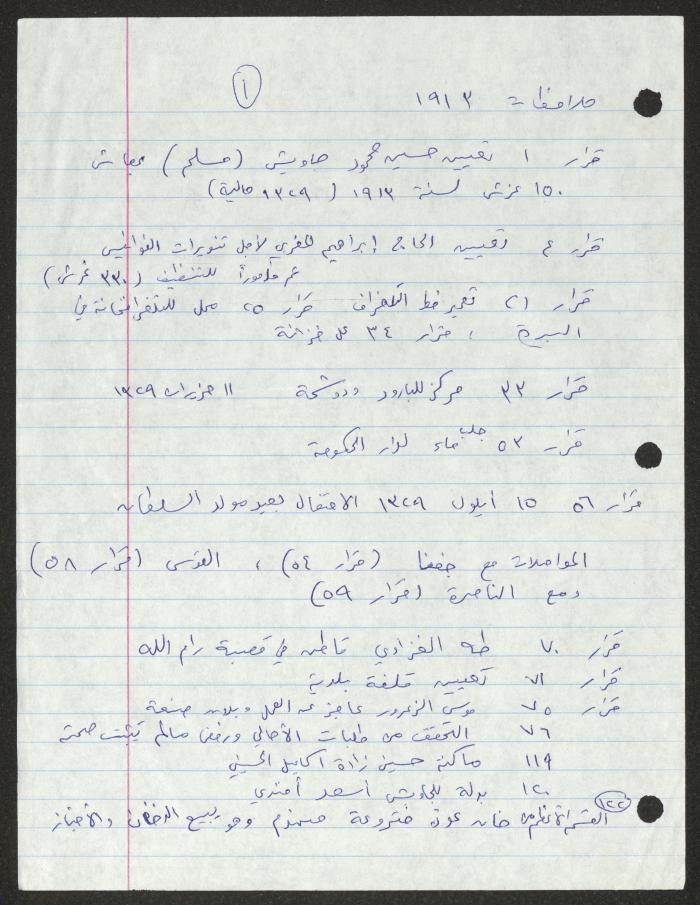 ١
ملاحظات ١٩١٣
قرار ١ تعيين حسين محمود جاويش (مسلم) بمعاش
١٥٠ غرش لسنة ١٩١٣ (١٣٢٩ مالية)
قرار ٤ تعيين الحاج إبراهيم المغربي لأجل تنويرات الفوانيس
ثم مأموراً للتنظيف (٣٣٠ غرش)
قرار ٢١ تعمير خط التلغراف قرار ٢٥ محل للتلغرافخانة في
البيرة ، قرار ٣٤ عمل خزانة
قرار ٣٣ مركز للبارود ودوشحة ١١ حزيران ١٣٢٩
قرار ٥٣ جلب ماء لدار الحكومة
قرار ٥٦ ١٥ أيلول ١٣٢٩ الاحتفال بعيد مولد السلطان
المواصلات مع جفنا (قرار ٥٤) ، القدس (قرار ٥٨)
ومع الناصرة (قرار ٥٩)
قرار ٧٠ طه الغزاوي قاطن في قصبة رام الله
قرار ٧١ تعيين قلفة بلدية
قرار ٧٥ موسى الزعرور عاجز عن العمل وبلا صنعة
٧٦ التحقق من طلبات الأهالي ورفض مالم يثبت صحته
١١٩ ماكنة حسين زادة اسماعيل الحسيني
١٢٠ بدلة للجاويش أسعد أفندي
١٢٢ القسم الأعظم من خان عودة منهدم وهو يبيع الدخان والأخباز